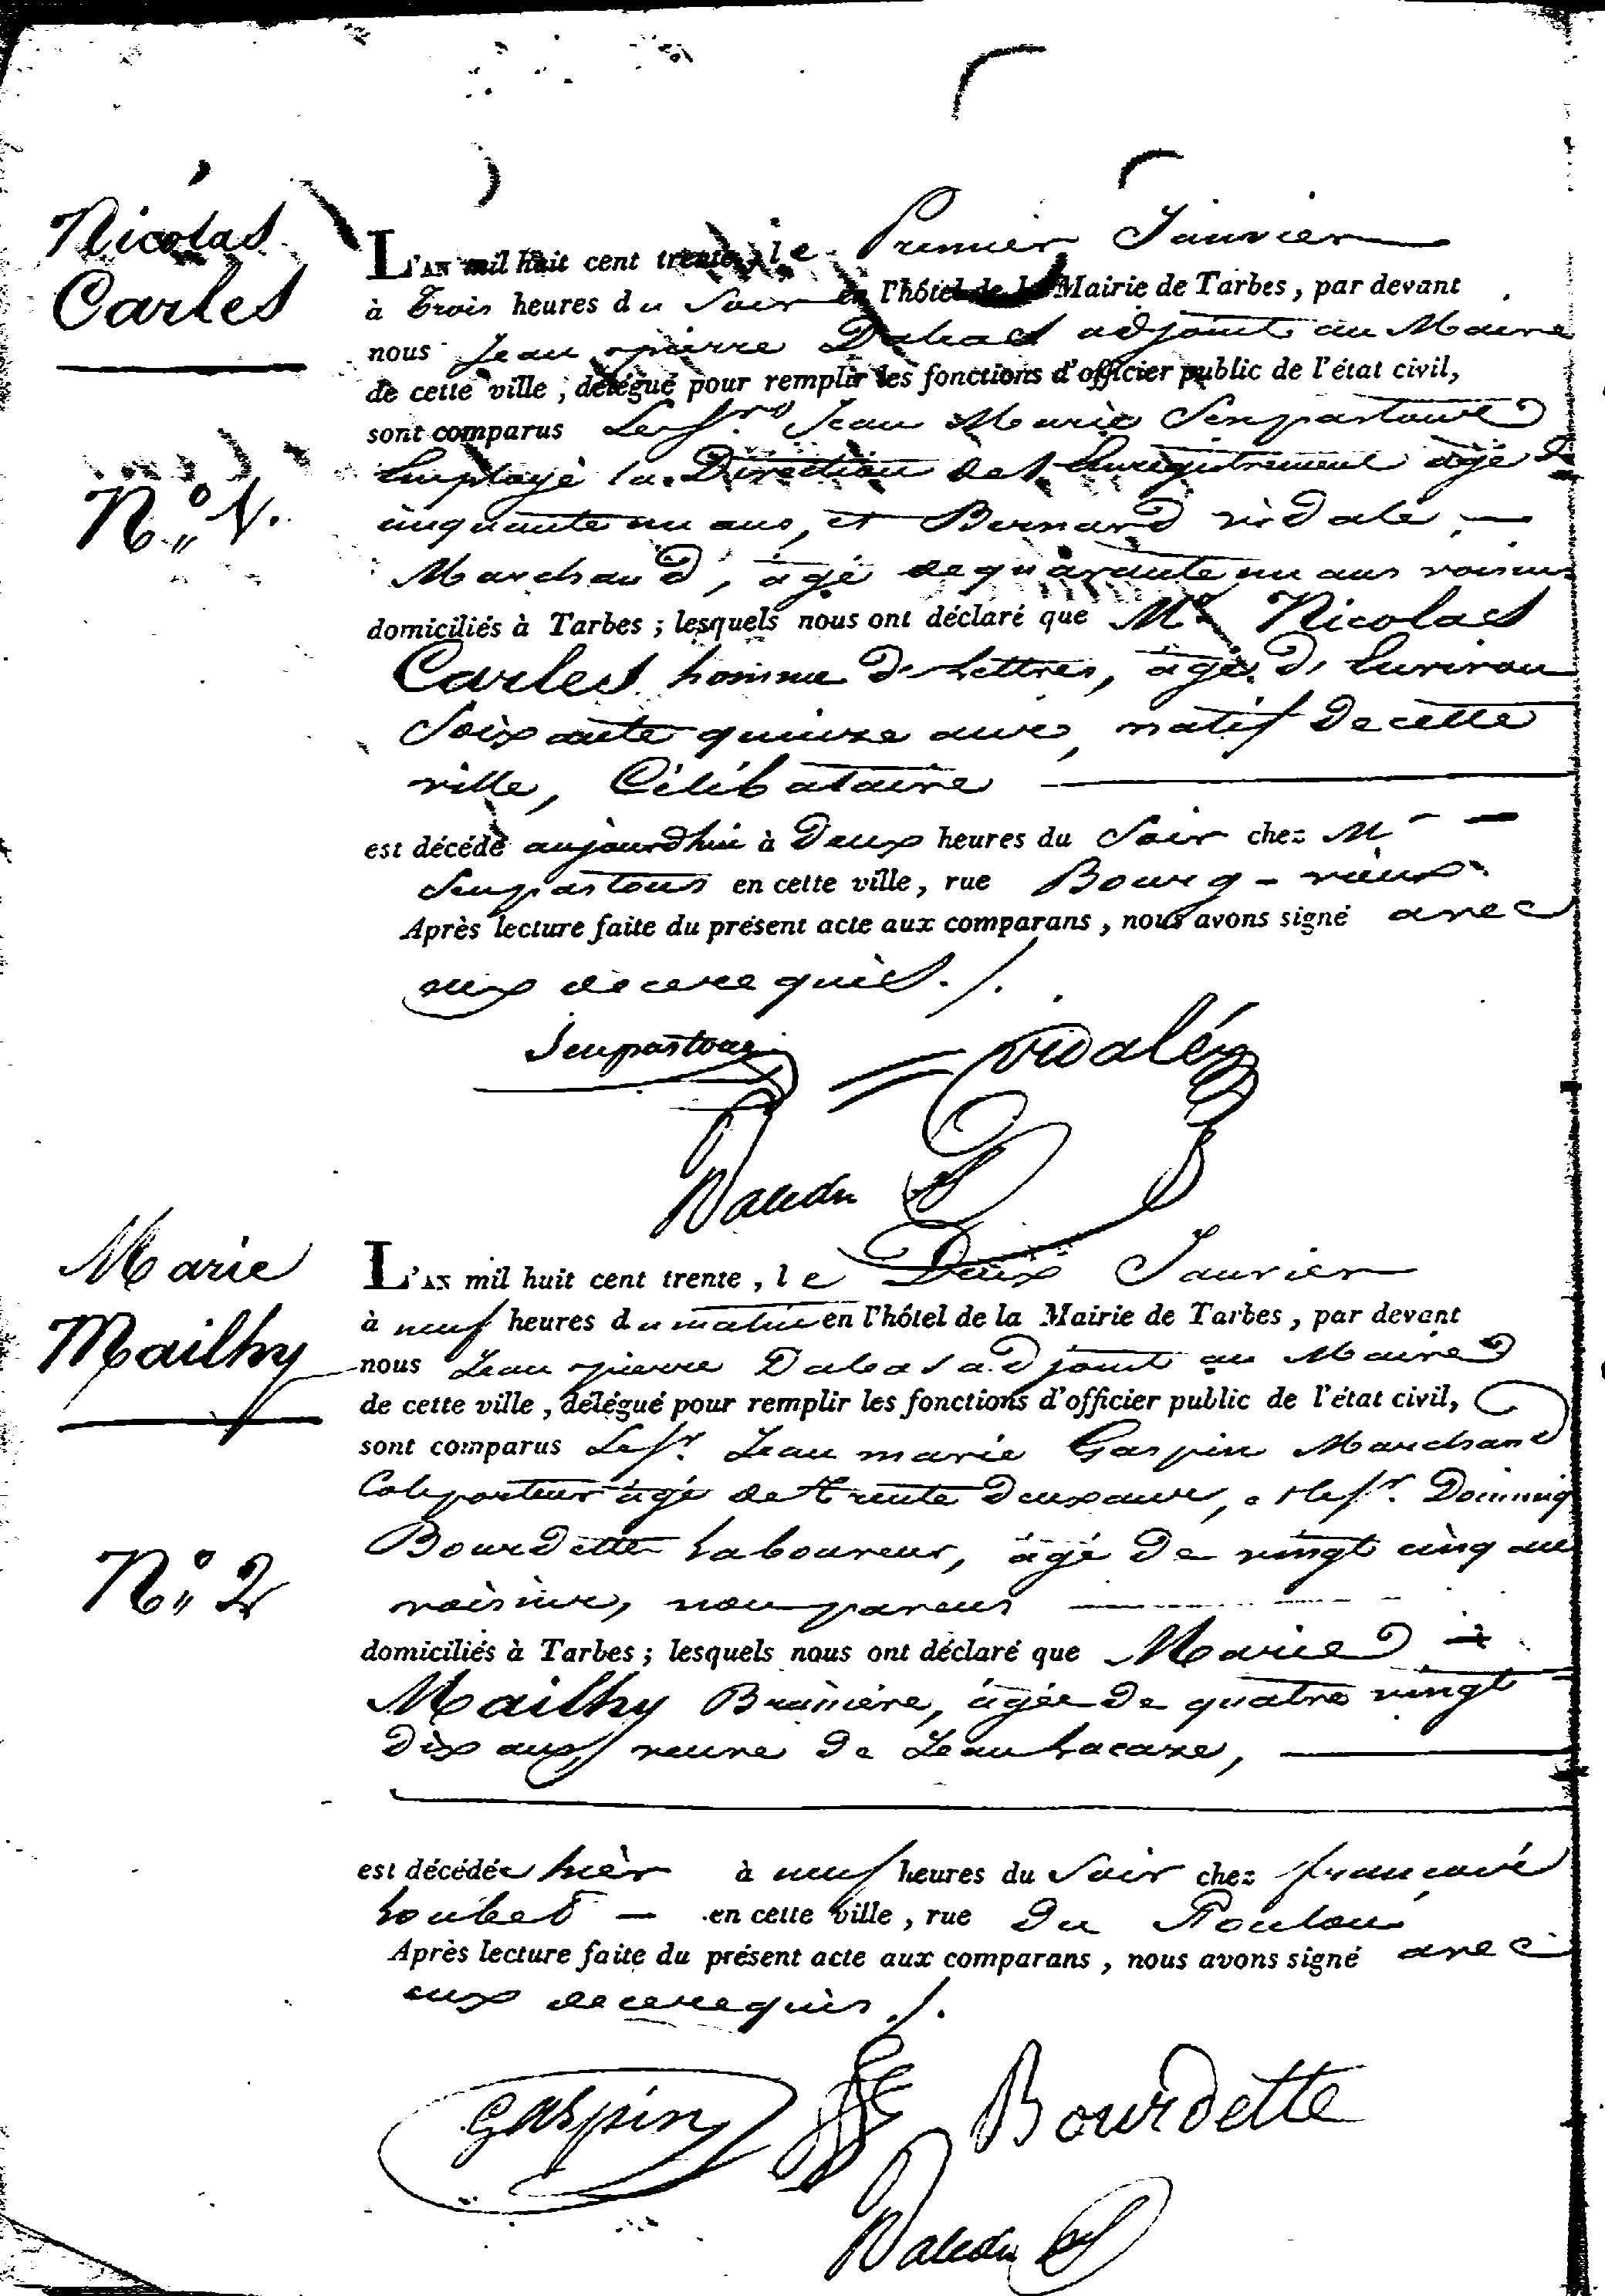 Nicolas
Carles
N.º 1.
L'AN mil huit cent trente, le Premier Janvier
à trois heures du Soir en l'hôtel de la Mairie de Tarbes, par devant
nous Jean pierre adjoint au Maire
de cette ville, délégué pour remplir les fonctions d'officier public de l'état civil,
sont comparus Les Srs Jean Marie Senpastous
Employé la Direction de l'Enregistrement âgé de
cinquante un ans, et Bernard vidalé
Marchand, âgé de quarante un ans voisins
domiciliés à Tarbes; lesquels nous ont déclaré que Mr Nicolas
Carles homme de Lettres, âgé d'Environ
Soixante quinze ans, natif de cette
ville, Célibataire
est décédé aujourdhui à Deux heures du Soir chez M
Senpastous en cette ville, rue Bourg-vieux
Après lecture faite du présent acte aux comparans, nous avons signé avec
eux de ce requis./.
Senpastous vidalé
Marie
Mailhy
N.º 2
L'AN mil huit cent trente, le Deux Janvier
à neuf heures du matin en l'hôtel de la Mairie de Tarbes, par devant
nous Jean pierre adjoint au Maire
de cette ville, délégué pour remplir les fonctions d'officier public de l'état civil,
sont comparus Le Sr. Jean marie Gaspin Marchand
Colporteur âgé de trente deux ans, et le Sr. Dominiq
Bourdette Laboureur, âgé de vingt cinq ans
voisins, non parens
domiciliés à Tarbes; lesquels nous ont déclaré que Marie
Mailhy âgée de quatre vingt
dix ans, veuve de Jean Lacaze,
est décédée hièr à neuf heures du Soir chez françois
Loubet en cette ville, rue du Foulon
Après lecture faite du présent acte aux comparans, nous avons signé avec
eux de ce requis./.
Gaspin Bourdette